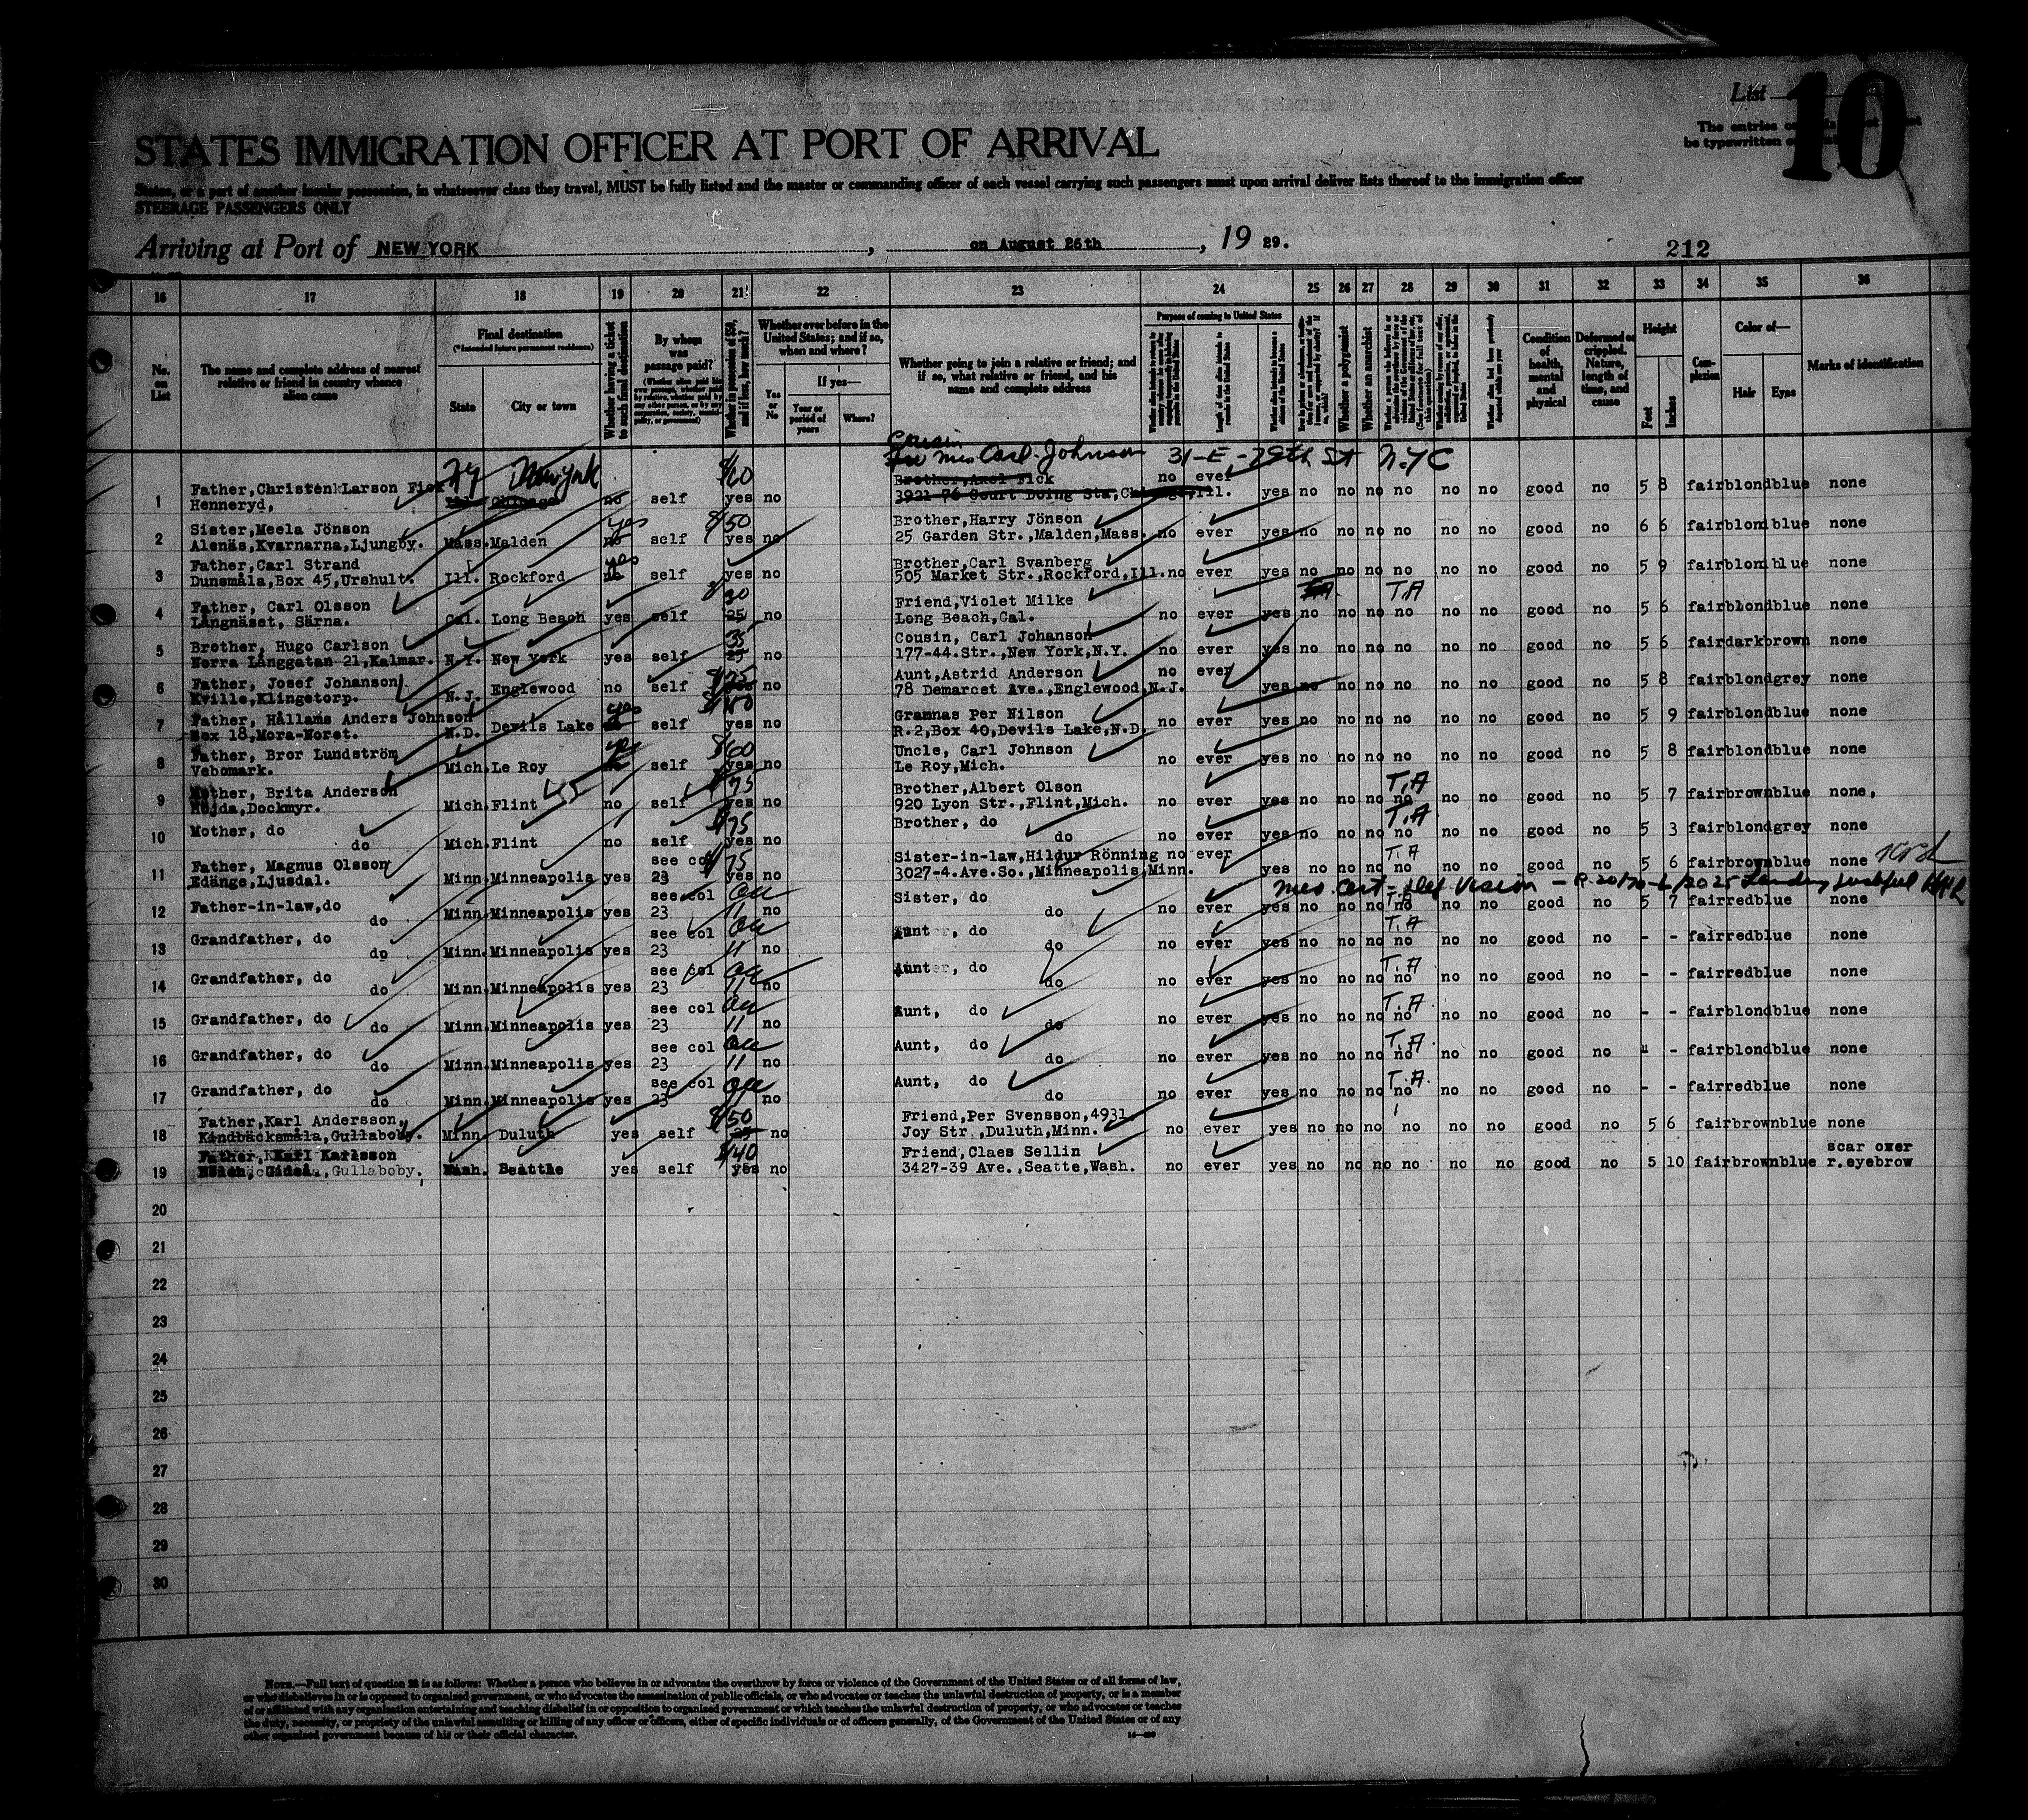 List
10
The entries
be typewritten
STATES IMMIGRATION OFFICER AT PORT OF ARRIVAL
States, or a port of another insular possession, in whatsoever class they travel, MUST be fully listed and the master or commanding officer of each vessel carrying such passengers must upon arrival deliver lists thereof to the immigration officer
STEERAGE PASSENGERS ONLY
Arriving at Port of NEW YORK, on August 26th, 19 29.
212
16 17 18 19 20 21 22 23 24 25 26 27 28 29 30 31 32 33 34 35 36
No. on List
The name and complete address of nearest relative or friend in country whence alien came
Final destination
(*Intended future permanent residence)
State
City or town
Whether having a ticket to such final destination
By whom was passage paid?
Whether in possession of $50, and if less, how much?
Whether ever before in the United States; and if so, when and where?
Yes or No
If yes—
Year or period of years
Where?
Whether going to join a relative or friend; and if so, what relative or friend, and his name and complete address
Purpose of coming to United States
Whether a polygamist
Whether an anarchist
Condition of health, mental and physical
Deformed or crippled. Nature, length of time, and cause
Height
Feet
Inches
Complexion
Color of—
Hair
Eyes
Marks of identification
Cousin
Mrs Carl Johnson 31-E-29th St N.Y.C
NY New York $60
1 Father,Christen Larson Fick Brother,Axel Fick no ever
Henneryd, Ill. Chicago no self yes no 3921-76 Court Doing Str,Chicago,Ill. yes no no no no no no good no 5 8 fair blond blue none
2 Sister,Meela Jönson yes $50 Brother,Harry Jönson
Alenäs,Kvarnarna,Ljungby. Mass. Malden no self yes no 25 Garden Str.,Malden,Mass. no ever yes no no no no no no good no 6 6 fair blond blue none
3 Father,Carl Strand yes Brother,Carl Svanberg
Dunsmåla,Box 45,Urshult. Ill. Rockford no self yes no 505 Market Str.,Rockford,Ill. no ever yes no no no no no no good no 5 9 fair blond blue none
4 Father, Carl Olsson Friend,Violet Milke T.A
Långnäset, Särna. Cal. Long Beach yes self 25 no Long Beach,Cal. no ever yes no no no no no no good no 5 6 fair blond blue none
5 Brother, Hugo Carlson 35 Cousin, Carl Johanson
Norra Långgatan 21,Kalmar. N.Y. New York yes self 25 no 177-44.Str.,New York,N.Y. no ever yes no no no no no no good no 5 6 fair dark brown none
6 Father, Josef Johanson $75 Aunt,Astrid Anderson no ever
Kville,Klingetorp. N.J. Englewood no self yes no 78 Demarcet Ave.,Englewood,N.J. yes no no no no no no good no 5 8 fair blond grey none
7 Father, Hållams Anders Johnson yes Grannas Per Nilson
Box 18,Mora-Noret. N.D. Devils Lake no self yes no R.2,Box 40,Devils Lake,N.D. no ever yes no no no no no no good no 5 9 fair blond blue none
8 Father, Bror Lundström yes $60 Uncle, Carl Johnson
Vebomark. Mich. Le Roy no self yes no Le Roy,Mich. no ever yes no no no no no no good no 5 8 fair blond blue none
9 Mother, Brita Anderson $75 Brother,Albert Olson T.A
Höjda,Dockmyr. Mich. Flint no self yes no 920 Lyon Str.,Flint,Mich. no ever yes no no no no no no good no 5 7 fair brown blue none.
10 Mother, do $75 Brother, do T.A
do Mich. Flint no self yes no do no ever yes no no no no no no good no 5 3 fair blond grey none
11 Father, Magnus Olsson see col $75 Sister-in-law,Hildur Rönning no ever T.A
Edänge,Ljusdal. Minn. Minneapolis yes 23 yes no 3027-4.Ave.So.,Minneapolis,Minn. yes no no no no no no good no 5 6 fair brown blue none
Med. Cert - def vision -
12 Father-in-law,do see col Sister, do T.A
do Minn. Minneapolis yes 23 11 no do no ever yes no no no no no no good no 5 7 fair red blue none
13 Grandfather, do see col Aunt, do T.A
do Minn. Minneapolis yes 23 11 no do no ever yes no no no no no no good no - - fair red blue none
14 Grandfather, do see col Aunt, do T.A
do Minn. Minneapolis yes 23 11 no do no ever yes no no no no no no good no - - fair red blue none
15 Grandfather, do see col Aunt, do T.A
do Minn. Minneapolis yes 23 11 no do no ever yes no no no no no no good no - - fair blond blue none
16 Grandfather, do see col Aunt, do T.A
do Minn. Minneapolis yes 23 11 no do no ever yes no no no no no no good no - - fair blond blue none
17 Grandfather, do see col Aunt, do T.A.
do Minn. Minneapolis yes 23 no do no ever yes no no no no no no good no - - fair red blue none
18 Father,Karl Andersson, $50 Friend,Per Svensson,4931
Kindbäcksmåla,Gullaboby. Minn. Duluth yes self 25 no Joy Str.,Duluth,Minn. no ever yes no no no no no no good no 5 6 fair brown blue none
19 Father, Karl Karlsson $40 Friend,Claes Sellin scar over
Gullaboby. Wash. Seattle yes self yes no 3427-39 Ave.,Seatte,Wash. no ever yes no no no no no no good no 5 10 fair brown blue r.eyebrow
20
21
22
23
24
25
26
27
28
29
30
NOTE.—Full text of question 28 is as follows: Whether a person who believes in or advocates the overthrow by force or violence of the Government of the United States or of all forms of law,
or who disbelieves in or is opposed to organized government, or who advocates the assassination of public officials, or who advocates or teaches the unlawful destruction of property, or is a member
of or affiliated with any organization entertaining and teaching disbelief in or opposition to organized government or which teaches the unlawful destruction of property, or who advocates or teaches
the duty, necessity, or propriety of the unlawful assaulting or killing of any officer or officers, either of specific individuals or of officers generally, of the Government of the United States or of any
other organized government because of his or their official character.